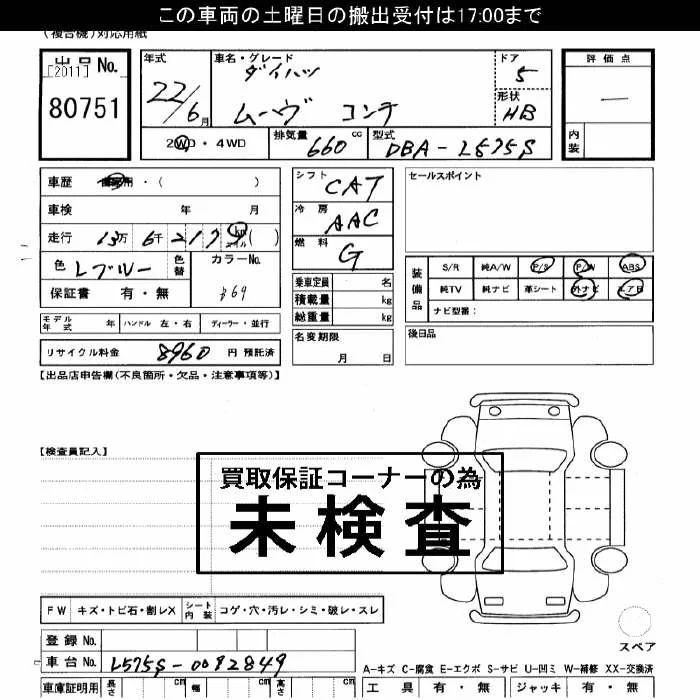 この車両の土曜日の搬出受付は17:00まで
(複合機)対応用紙
出品No.
[2011]
80751
年式
22/6月
車名・グレード
ダイハツ
ムーヴ コンテ
ドア
5
形状
HB
評価点
―
内装
2WD・4WD
排気量 660 cc
型式 DBA-L575S
車歴 自家用・( )
車検 年 月
走行 13万6千2179 km マイル ( )
色 Lブルー 色替
カラーNo.
保証書 有・無
シフト CAT
冷房 AAC
燃料 G
乗車定員 名
積載量 kg
総重量 kg
セールスポイント
装備品
S/R 純A/W P/S P/W ABS
純TV 純ナビ 革シート 外ナビ エアB
ナビ型番:
モデル年式 年 ハンドル 左・右 ディーラー・並行
名変期限
月 日
後日品
リサイクル料金 8960 円 預託済
【出品店申告欄(不良箇所・欠品・注意事項等)】
【検査員記入】
買取保証コーナーの為
未検査
FW キズ・トビ石・割レX シート内装 コゲ・穴・汚レ・シミ・破レ・スレ
スペア
登録No.
車台No. L575S-0082849
A-キズ C-腐食 E-エクボ S-サビ U-凹ミ W-補修 XX-交換済
車庫証明用 長さ cm 幅 cm 高さ cm
工具 有・無 ジャッキ 有・無